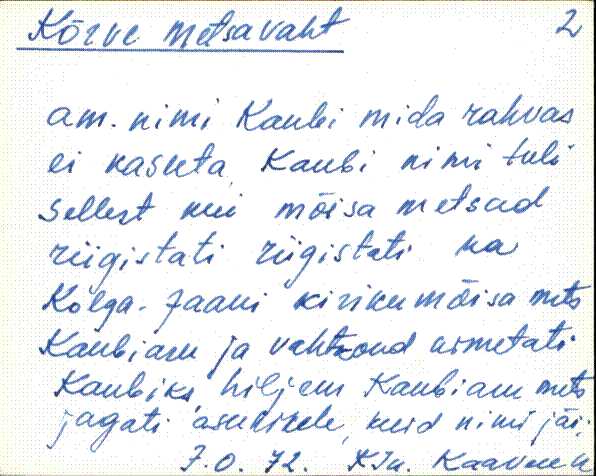 Kõrve metsavaht 2
am. nimi Kaubi mida rahvas
ei kasuta, Kaubi nimi tuli
sellest kui mõisa metsad
riigistati riigistati ka
Kolga-Jaani kirikumõisa mets
Kaubiaru ja vahtkond nimetati
Kaubiks, hiljem Kaubiaru mets
jagati asunikele, kuid nimi jäi.
7.0. 72.